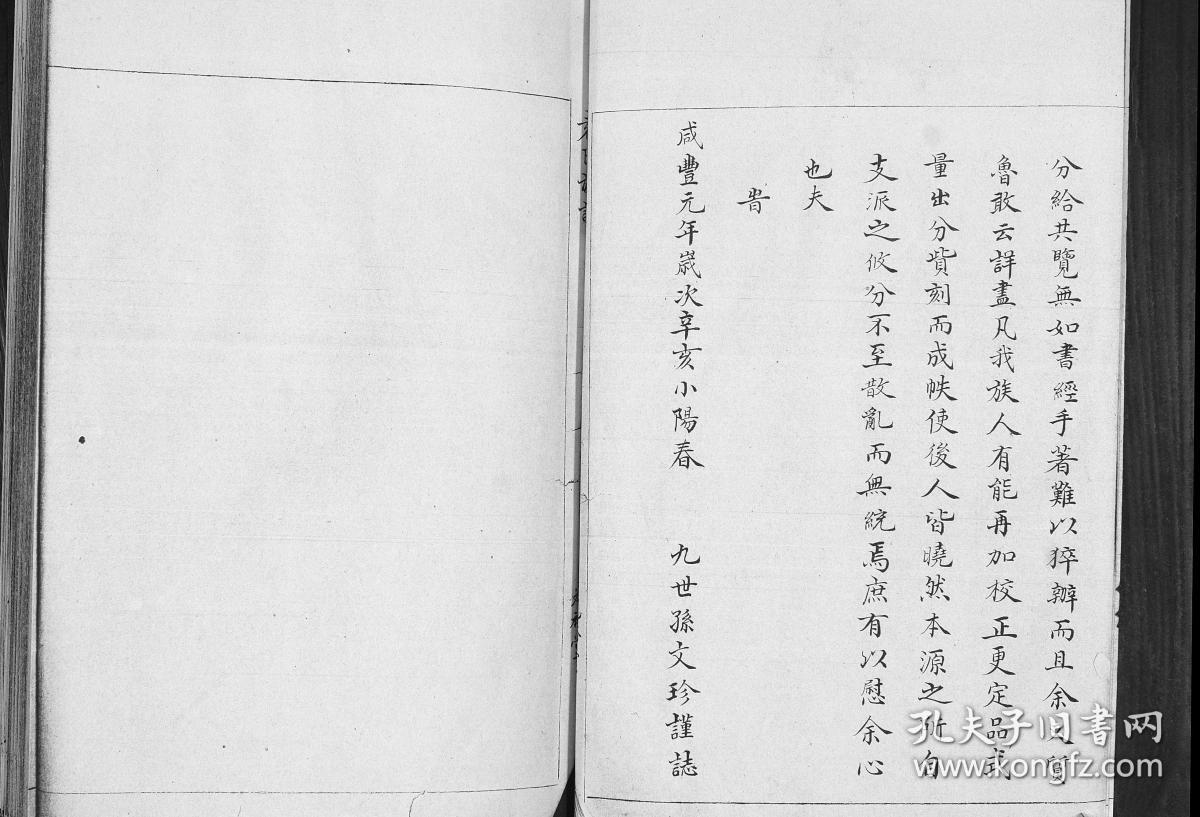 分給共覽無如書經手著難以猝辦而且余之質
魯敢云詳盡凡我族人有能再加校正更定品式
量出分貲刻而成帙使後人皆曉然本源之所自
支派之攸分不至散亂而無統焉庶有以慰余心
也夫
旹
咸豐元年歲次辛亥小陽春 九世孫文珍謹誌
孔夫子旧書网
www.kongfz.com